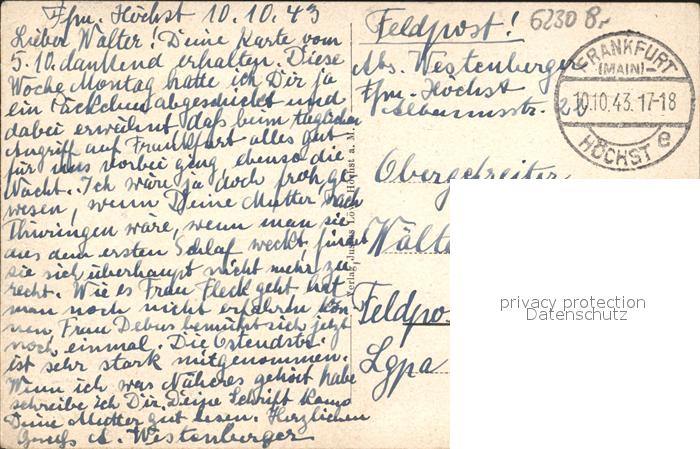 Ffm. Höchst 10.10.43
Lieber Walter! Deine Karte vom
5.10. dankend erhalten. Diese
Woche Montag hatte ich Dir ja
ein Päckchen abgeschickt und
dabei erwähnt daß beim täglichen
Angriff auf Frankfurt alles gut
für uns vorbei ging ebenso die
Nacht. Ich wäre ja doch froh ge
wesen, wenn Deine Mutter nach
Thüringen wäre, wenn man sie
aus dem ersten Schlaf weckt, findet
sie sich überhaupt nicht mehr zu
recht. Wie es Frau Fleck geht hat
man noch nicht erfahren kön
nen, Frau Debus bemüht sich jetzt
noch einmal. Die Ostendstr.
ist sehr stark mitgenommen.
Wenn ich was Näheres gehört habe
schreibe ich Dir. Deine Schrift kann
Deine Mutter gut lesen. Herzlichen
Gruß A. Westenberger
Verlag Justus Höchst a. M.
6230 Br
Feldpost!
Abs. Westenberger
Ffm. Höchst
FRANKFURT
(MAIN)
10.10.43.17-18
HÖCHST e
Obergefreiter
Walte
Feldpos
Lgpa
privacy protection
Datenschutz